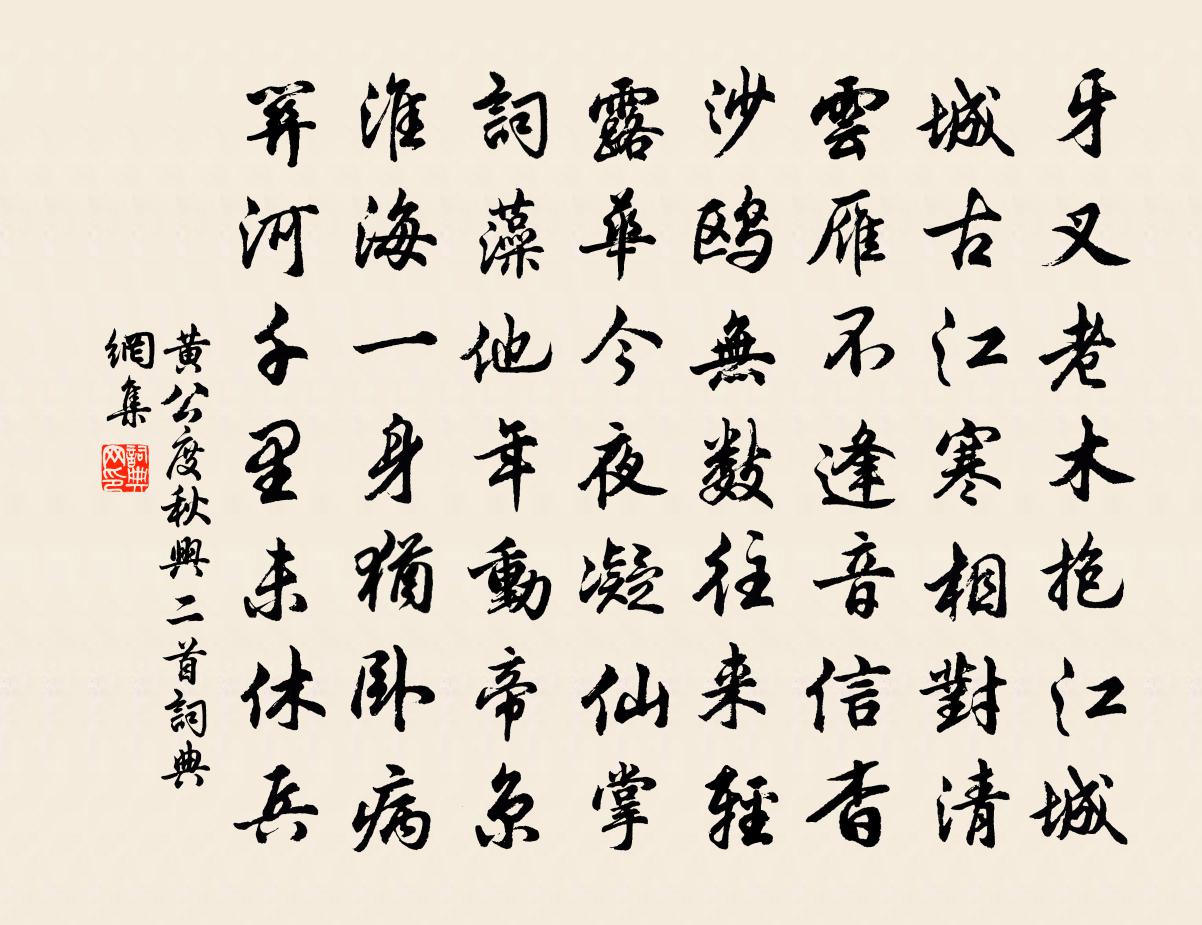 牙叉老木抱江城
城古江寒相對清
雲雁不逢音信杳
沙鷗無數往来輕
露華今夜凝仙掌
詞藻他年動帝京
淮海一身猶臥病
關河千里未休兵
黄公度秋興二首詞典
網集
詞典
网印